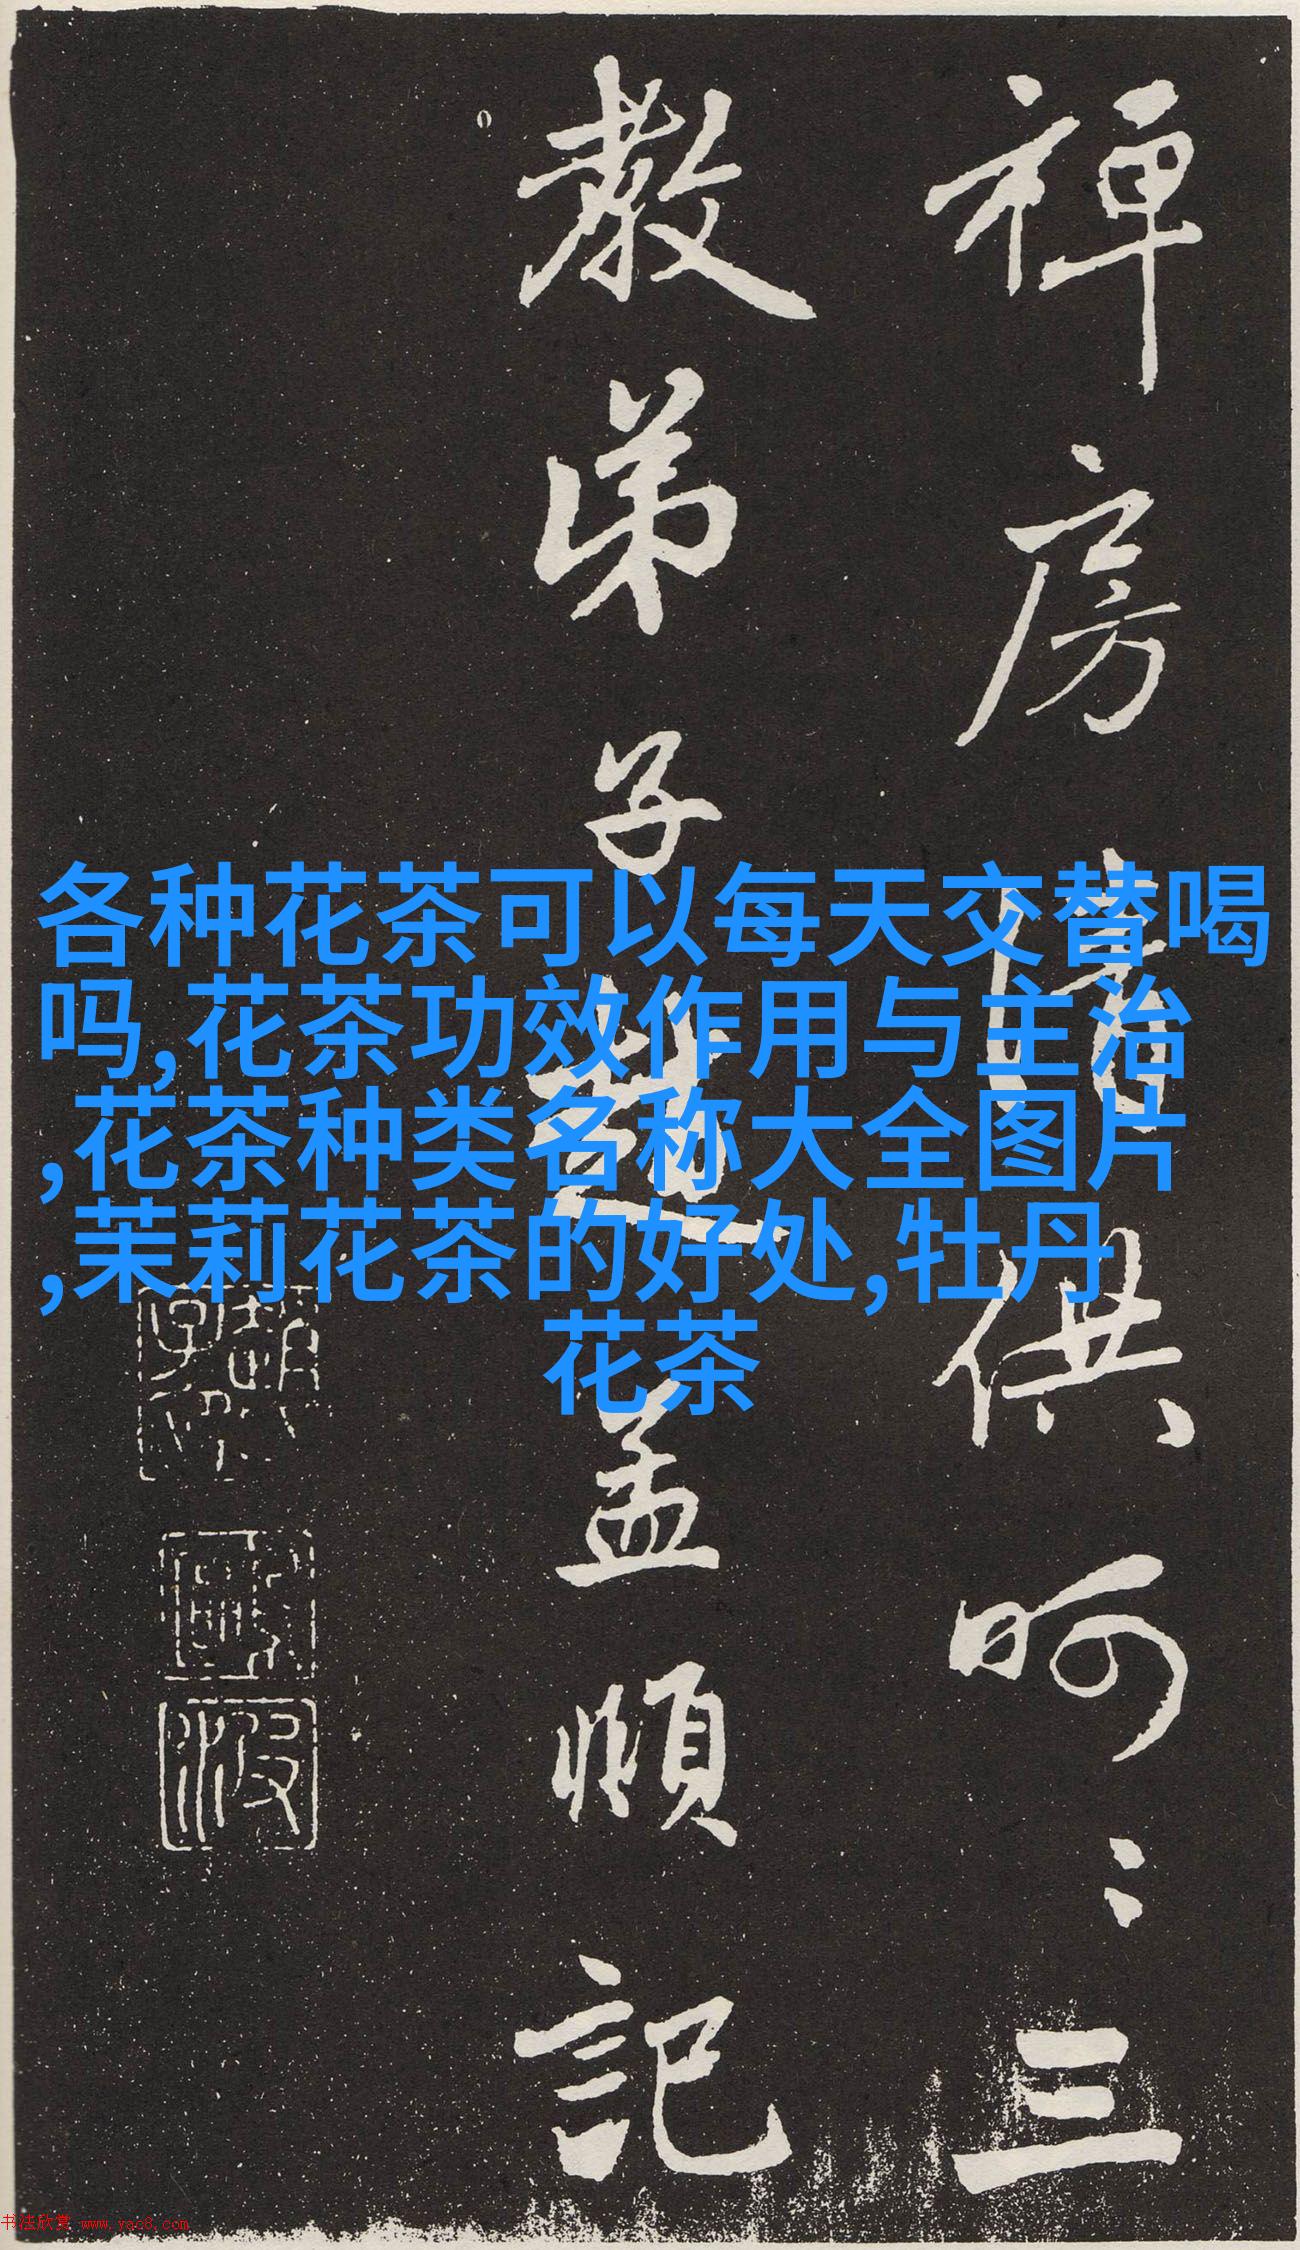 禅房清供呵〻三
教弟子趙孟頫記
各种花茶可以每天交替喝
吗,花茶功效作用与主治
,花茶种类名称大全图片
,茉莉花茶的好处,牡丹
花茶
书法欣赏 www.yac8.com